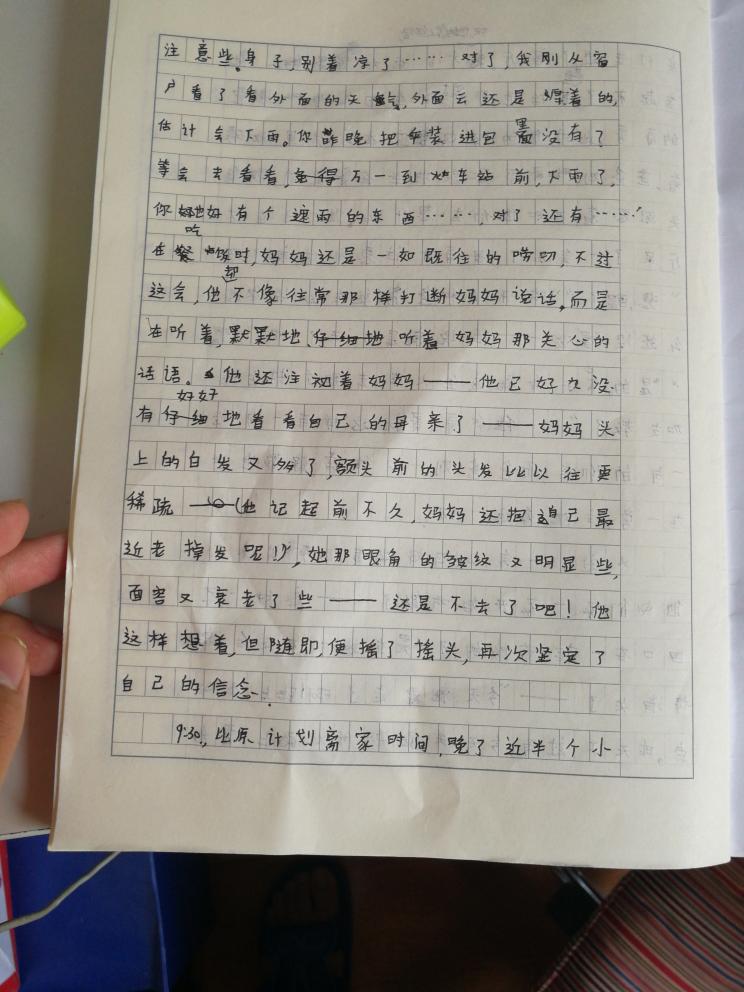 注意些身子,别着凉了……对了,我刚从窗
户看了看外面的天气,外面云还是积着的,
估计会下雨。你昨晚把伞装进包里没有?
等会去看看,免得万一到火车站前,下雨了,
你好有个避雨的东西……,对了还有……”
在吃饭时,妈妈还是一如既往的唠叨,不过
这会,他却不像往常那样打断妈妈说话,而是
在听着,默默地听着妈妈那关心的
话语。他还注视着妈妈——他已好久没
有好好地看看自己的母亲了——妈妈头
上的白发又多了,额头前的头发比以往更
稀疏——(他记起前不久,妈妈还抱自己最
近老掉发呢!),她那眼角的皱纹又明显些,
面容又衰老了些——还是不去了吧!他
这样想着,但随即,便摇了摇头,再次坚定了
自己的信念.
9:30,比原计划离家时间,晚了近半个小